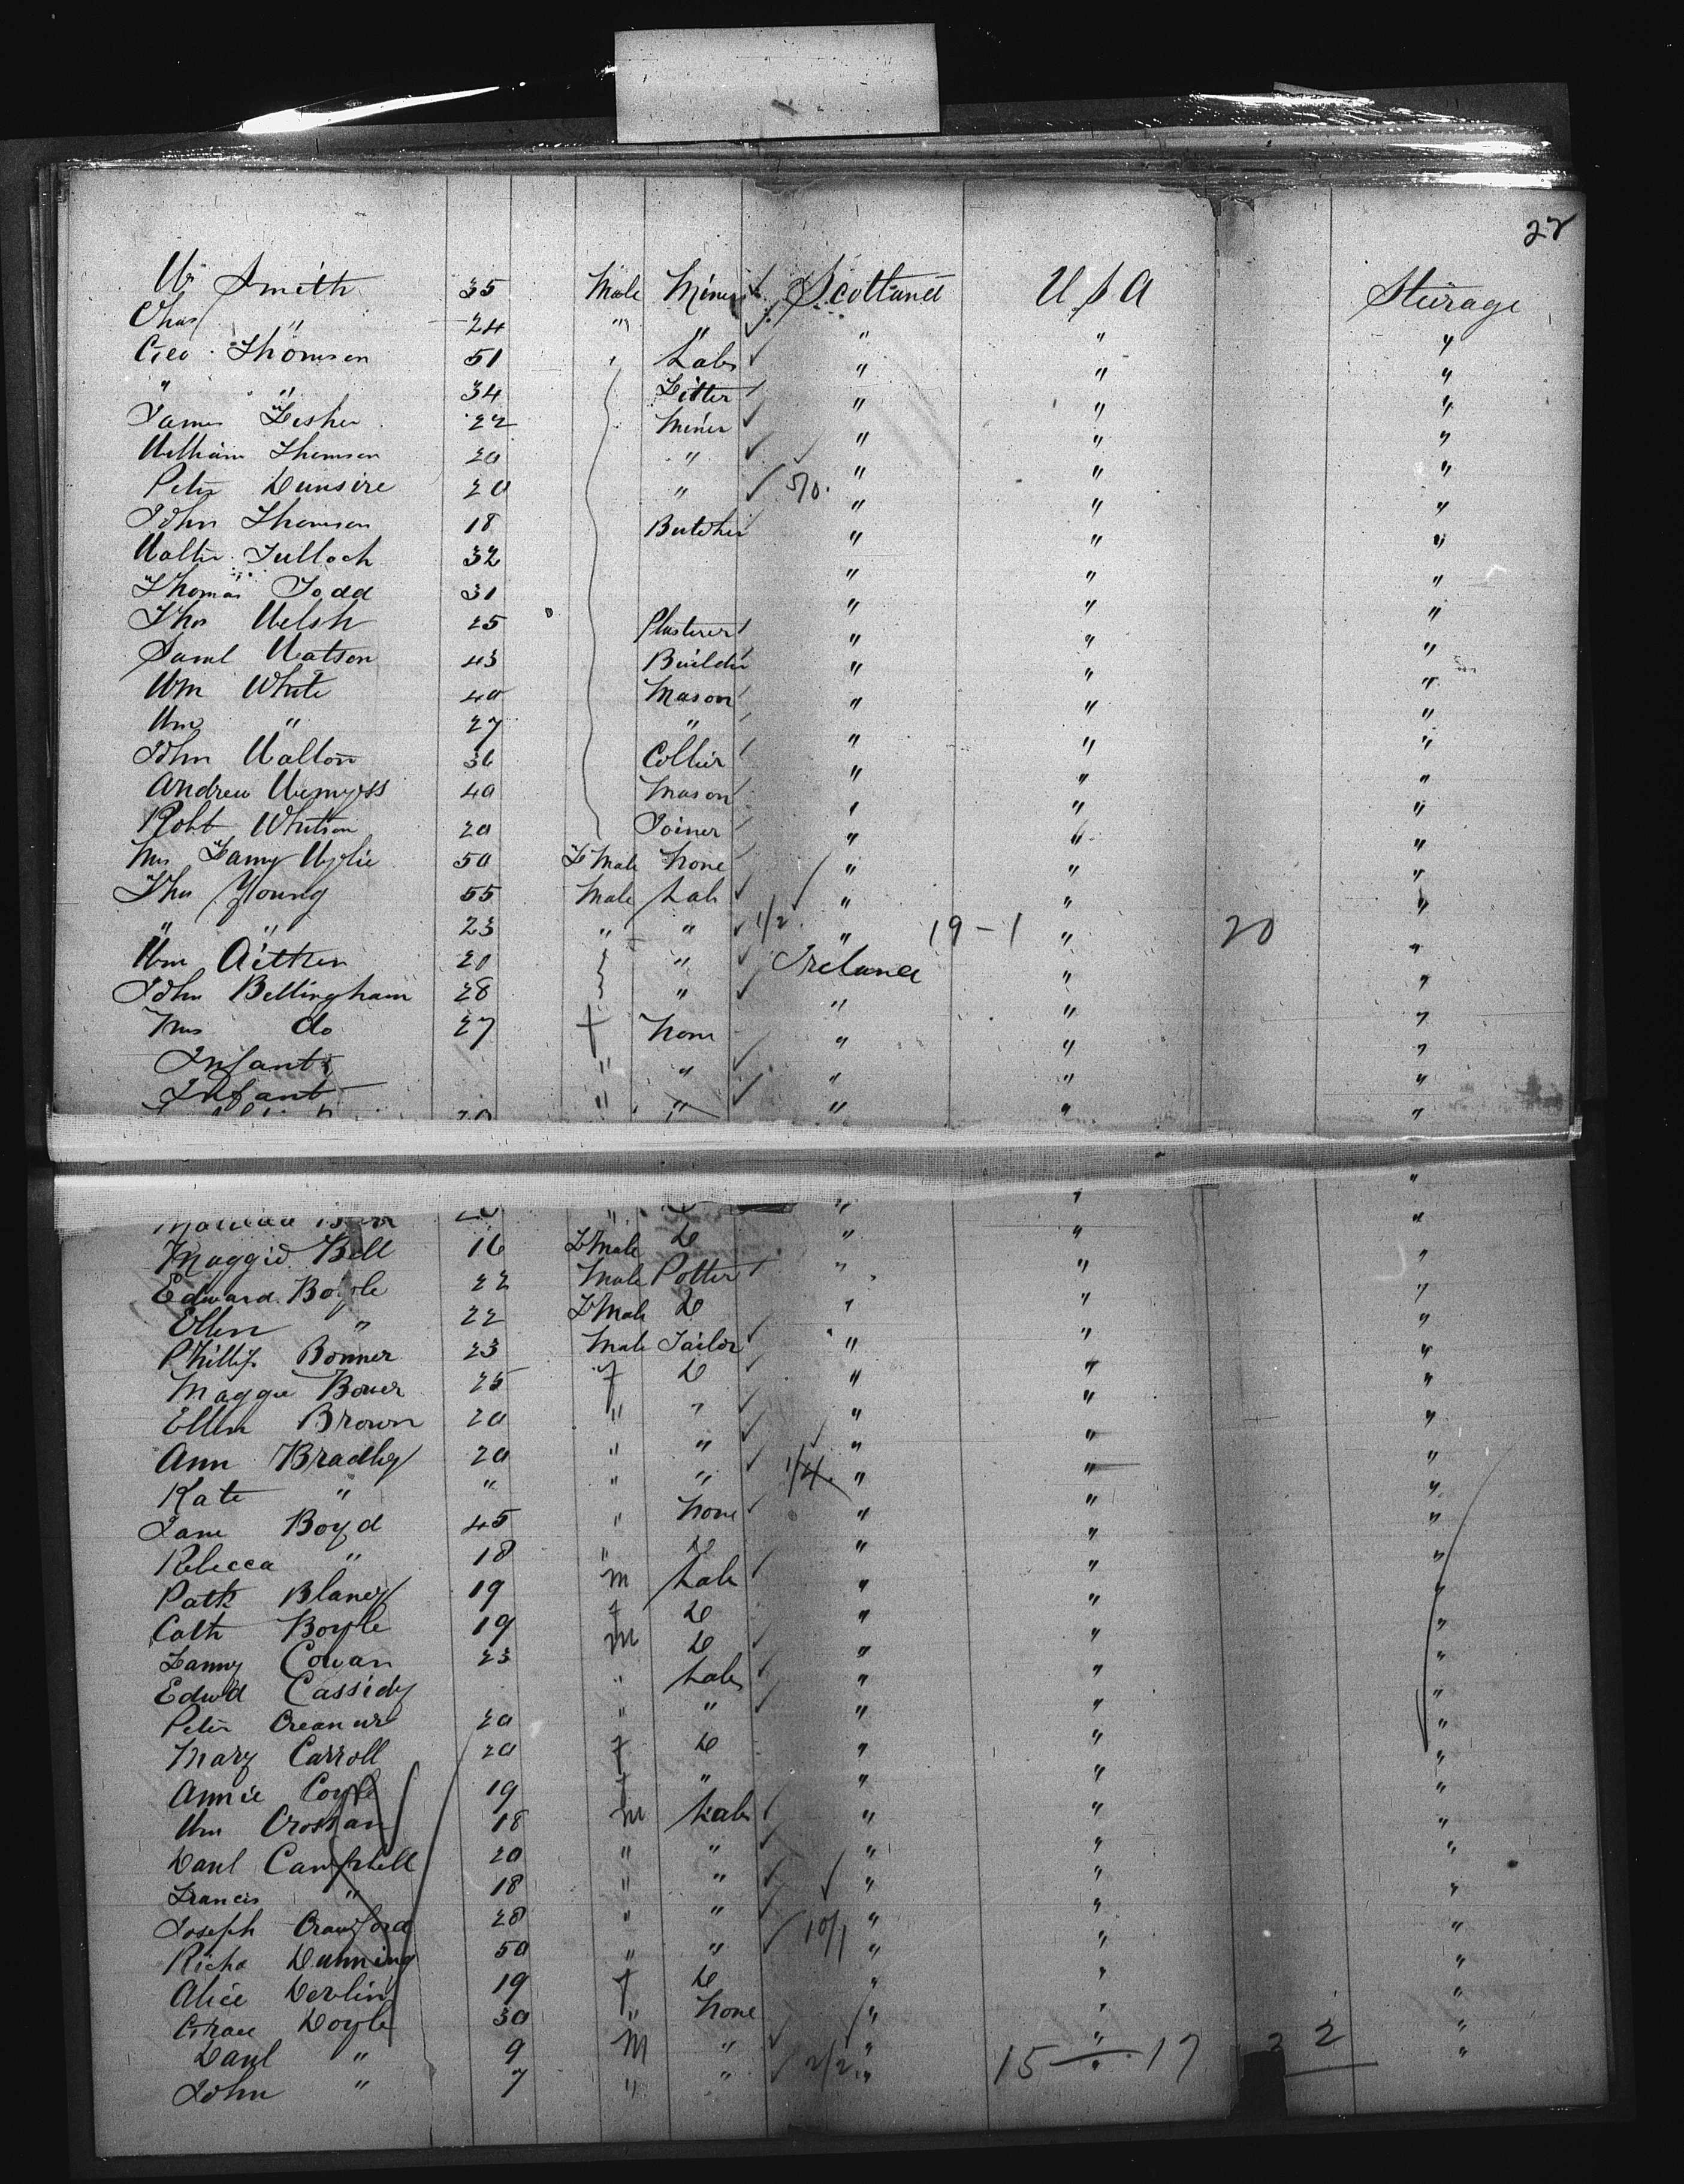 22
Wm Smith 35 Male Miner Scotland U S A Steerage
Chas " 24 " " " " "
Geo Thomson 51 " Labr " " "
" " 34 Fitter " " "
James Fisher 22 Miner " " "
William Thomson 20 " " " "
Peter Dunsire 20 " 5/0 " " "
John Thomson 18 Butcher " " "
Walter Tulloch 32 " " "
Thomas Todd 31 " " "
Thos Welsh 25 Plasterer " " "
Saml Watson 43 Builder " " "
Wm White 40 Mason " " "
Wm " 27 " " " "
John Walton 36 Collier " " "
Andrew Wemyss 40 Mason " " "
Robt Whitson 20 Joiner " " "
Mrs Fanny Wylie 50 F Male None " " "
Thos Young 55 Male Lab " " "
" " 23 " " 1/2 " 19-1 " 20 "
Wm Aitken 20 " Ireland " "
John Bellingham 28 " " " "
Mrs do 27 f None " " "
Infant " " " " "
Infant " " " " "
Maggie Bell 16 F Male D " " "
Edward Boyle 22 Male Potter " " "
Ellen " 22 F Male D " " "
Phillip Bonner 23 Male Tailor " " "
Maggie Boner 25 f D " " "
Ellen Brown 20 " " " " "
Ann Bradley 20 " " " " "
Kate " " " " 1/4 " " "
Jane Boyd 45 " None " " "
Rebecca " 18 " D " " "
Patk Blaney 19 M Lab " " "
Cath Boyle 19 f D " " "
Fanny Cowan 23 M D " " "
Edwd Cassidy " Labr " " "
Peter 20 " " " " "
Mary Carroll 20 f D " " "
Annie Coyle 19 f " " " "
Wm Crossan 18 M Labr " " "
Danl Campbell 20 " " " " "
Francis " 18 " " " " "
Joseph Crawford 28 " " " " "
Richd Dunning 50 " " 10/1 " " "
Alice Devlin 19 f D " " "
Grace Doyle 30 " None " " "
Danl " 9 M " " " "
John " 7 " " 2/2 " 15 - 17 22 "